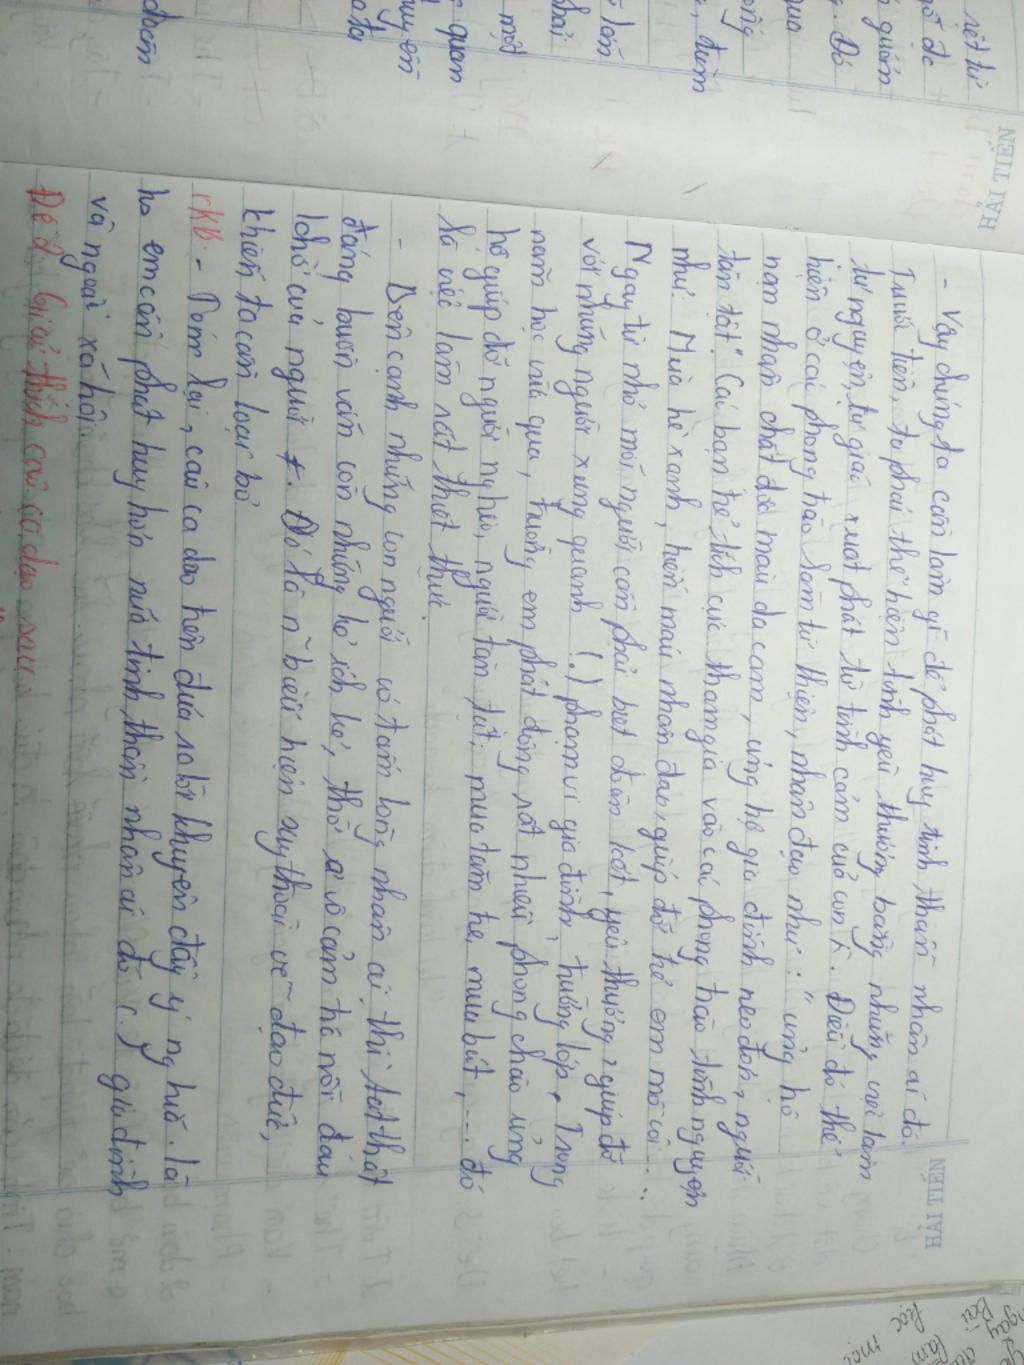 HẢI TIẾN
HẢI TIẾN
- Vậy chúng ta cần làm gì để phát huy tinh thần nhân ái đó.
Trước tiên, ta phải thể hiện tình yêu thương bằng những việc làm
tự nguyện, tự giác xuất phát từ tình cảm của con ng̃. Điều đó thể
hiện ở các phong trào làm từ thiện, nhân đạo như: "ủng hộ
nạn nhân chất độc màu da cam, ủng hộ gia đình neo đơn, người
tàn tật" Các bạn trẻ tích cực tham gia vào các phong trào tình nguyện
như: Mùa hè xanh, hiến máu nhân đạo, giúp đỡ trẻ em mồ côi...
Ngay từ nhỏ mỗi người cần phải biết đoàn kết, yêu thương, giúp đỡ
với những người xung quanh (.) phạm vi gia đình, trường lớp. Trong
năm học vừa qua, trường em phát động rất nhiều phong chào ủng
hộ giúp đỡ người nghèo, người tàn tật, mua tăm tre, mua bút, .... đó
là việc làm rất thiết thực.
- Bên cạnh những con người có tấm lòng nhân ái thì thật
đáng buồn vẫn còn những kẻ ích kỉ, thờ ơ vô cảm trước nỗi đau
khổ của người #. Đó là n~ biểu hiện suy thoái về đạo đức,
khiến ta cần loại bỏ
*KB: - Tóm lại, câu ca dao trên đưa ra lời khuyên đầy ý nghĩa. Là
hs em cần phát huy hơn nữa tinh thần nhân ái đó (.) gia đình
và ngoài xã hội.
Đề 2: Giải thích câu ca dao sau